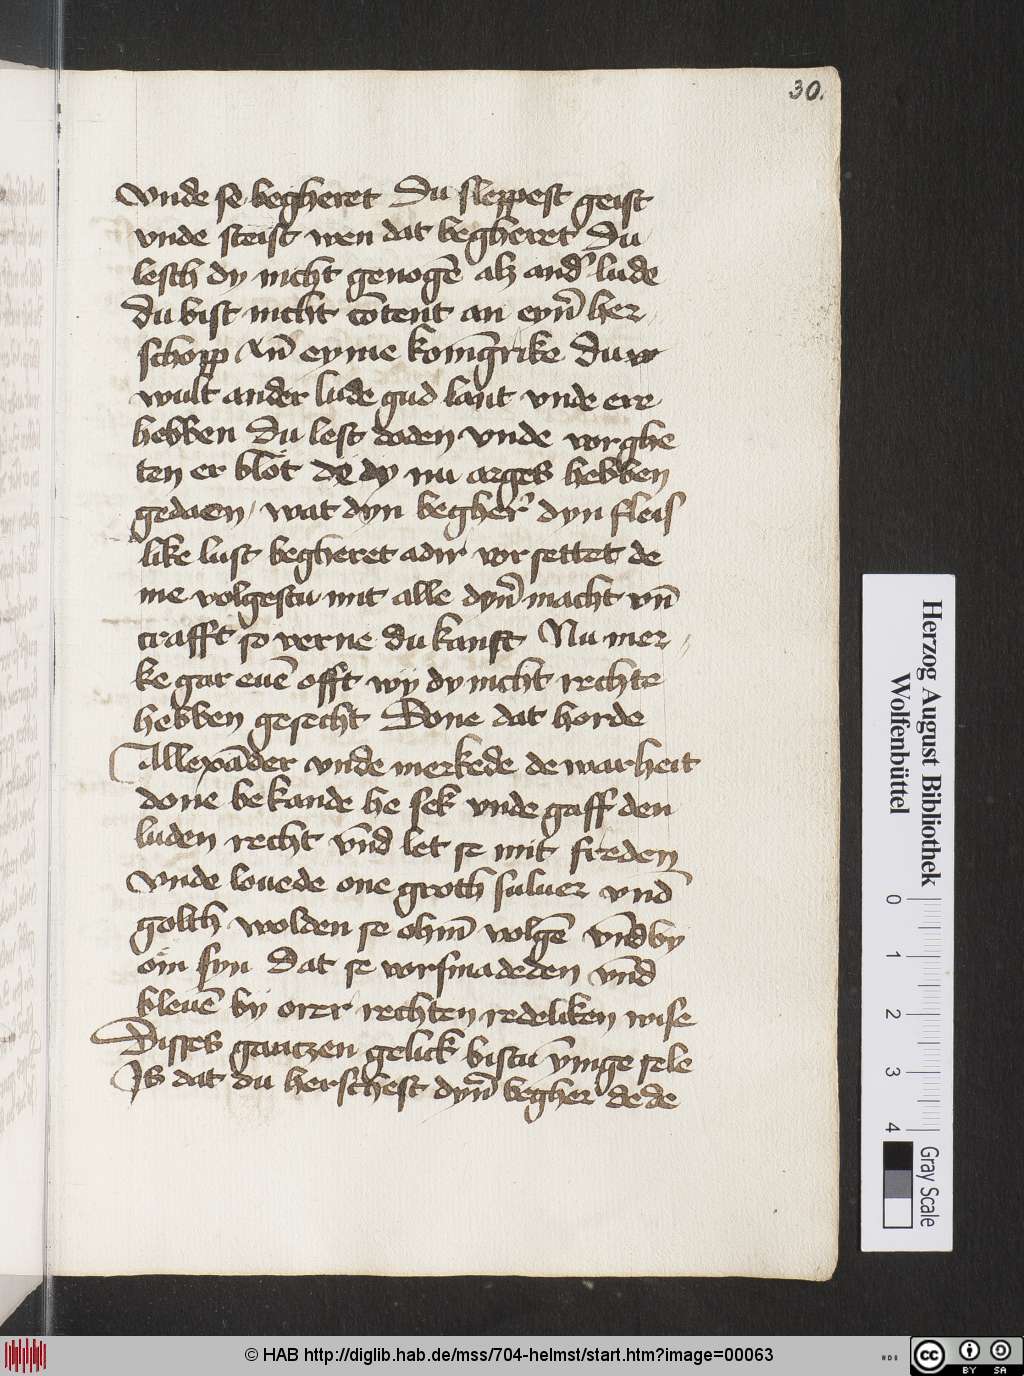 30.
vnde se begheret Du sleppest geist
vnde steist wen dat begheret Du
lesch dy nicht genogē alz and' lude
du bist nicht cōtent an eyn̄ her
schopp An̄ eyme konīgrike Du w
wult ander lude gud lant vnde ere
hebben Du lest doden vnde vorghe
ten er blot de dy nu arges hebben
gedaen / wat dyn begher' dyn fleis
like lust begheret adir vor settet de
me volgestu mit alle dyn̄ macht vn̄
crafft so verne du kanst Nu mer
ke gar euē offt wy dy nicht rechte
hebben gesecht Done dat horde
Allexāder vnde merkede de warheit
done bekande he sek vnde gaff den
luden recht vn̄d let se mit freden
vnde louede one groth suluer vnd
golth wolden se ohm̄ volgē vn̄d by
om syn Dat se vorsmadeden vn̄d
bleuē by orer rechten redeliken wise
Disses gantzen gelick bistu yn̄ige sele
Is dat du herschest dyn̄ begher de de
Herzog August Bibliothek
Wolfenbüttel
0 1 2 3 4
Gray Scale
© HAB http://diglib.hab.de/mss/704-helmst/start.htm?image=00063
cc BY SA